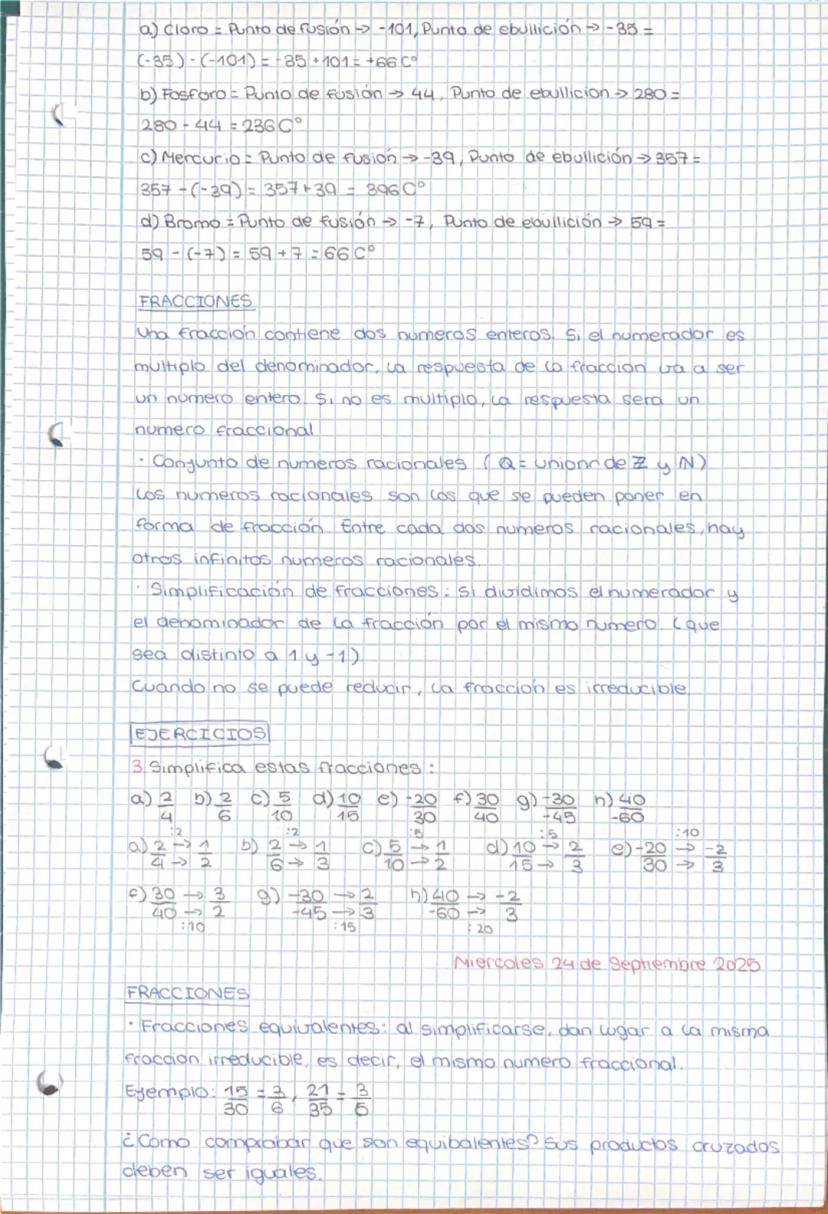 a) Cloro = Punto de fusión → -101, Punto de ebullición → -35 =
(-35) - (-101) = -35 + 101 = +66 Cº
b) Fosforo = Punto de fusión → 44, Punto de ebullicion → 280 =
280 - 44 = 236 Cº
c) Mercurio = Punto de fusión → -39, Punto de ebullición → 357 =
357 - (-39) = 357 + 39 = 396 Cº
d) Bromo = Punto de fusión → -7, Punto de ebullición → 59 =
59 - (-7) = 59 + 7 = 66 Cº
FRACCIONES
Una fracción contiene dos numeros enteros. Si el numerador es
multiplo del denominador, la respuesta de la fraccion va a ser
un numero entero. Si no es multiplo, la respuesta sera un
numero fraccional
· Conjunto de numeros racionales (Q = unionn de Z y N)
Los numeros racionales son los que se pueden poner en
forma de fracción. Entre cada dos numeros racionales, hay
otros infinitos numeros racionales.
· Simplificación de fracciones: si dividimos el numerador y
el denominador de la fracción por el mismo numero (que
sea distinto a 1 y -1)
Cuando no se puede reducir, la fraccion es irreducible
EJERCICIOS
3 Simplifica estas fracciones:
a) 2/4 b) 2/6 c) 5/10 d) 10/15 e) -20/30 f) 30/40 g) -30/-45 h) 40/-60
a) 2/4 :2 → 1/2 b) 2/6 :2 → 1/3 c) 5/10 :5 → 1/2 d) 10/15 :5 → 2/3 e) -20/30 :10 → -2/3
f) 30/40 → 3/2 :10 g) -30/-45 → 2/3 :15 h) 40/-60 → -2/3 :20
Miercoles 24 de Septiembre 2025
FRACCIONES
· Fracciones equivalentes: al simplificarse, dan lugar a la misma
fraccion irreducible, es decir, el mismo numero fraccional.
Ejemplo: 15/30 = 3/6, 21/35 = 3/5
¿Como comprobar que son equibalentes? Sus productos cruzados
deben ser iguales.